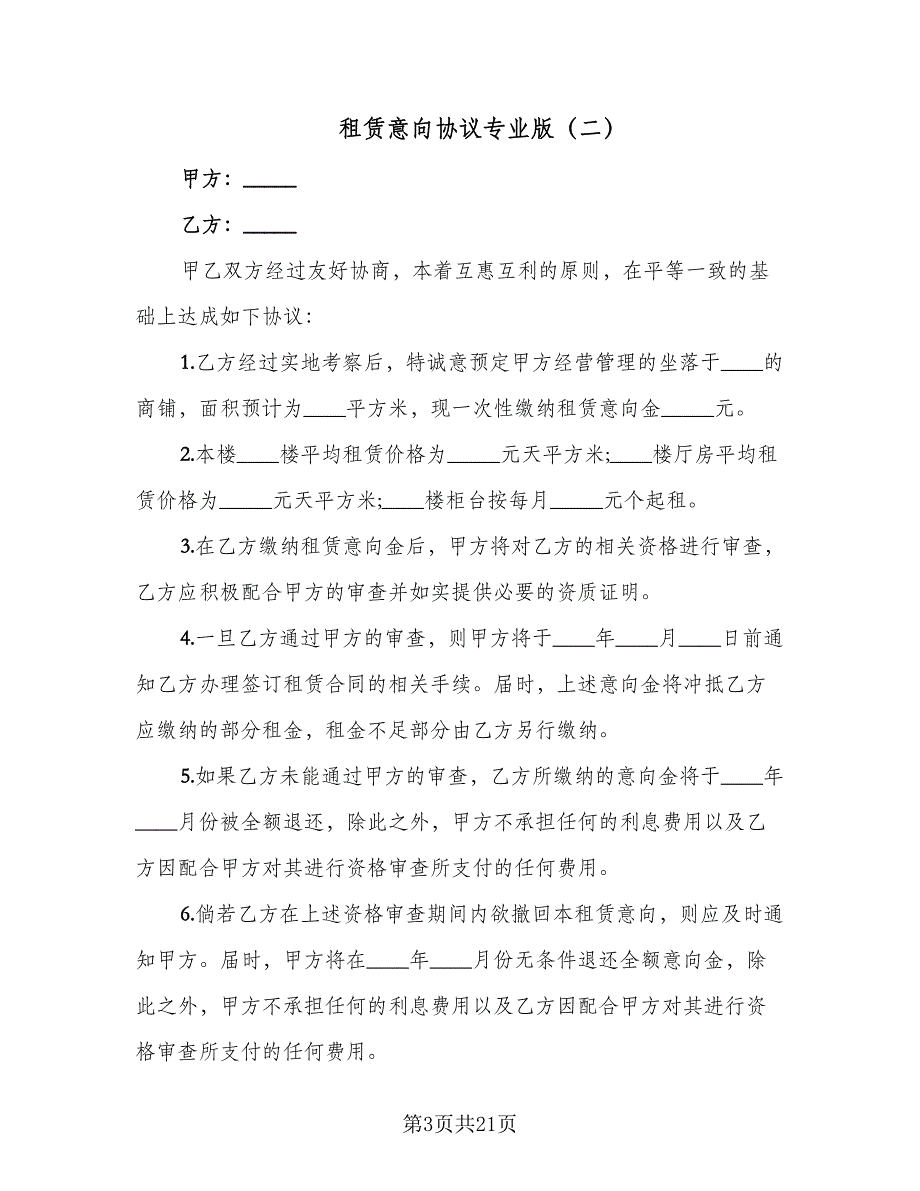 租赁意向协议专业版（二）
甲方：_____
乙方：_____
甲乙双方经过友好协商，本着互惠互利的原则，在平等一致的基
础上达成如下协议：
1.乙方经过实地考察后，特诚意预定甲方经营管理的坐落于____的
商铺，面积预计为____平方米，现一次性缴纳租赁意向金_____元。
2.本楼____楼平均租赁价格为_____元天平方米;____楼厅房平均租
赁价格为_____元天平方米;____楼柜台按每月_____元个起租。
3.在乙方缴纳租赁意向金后，甲方将对乙方的相关资格进行审查，
乙方应积极配合甲方的审查并如实提供必要的资质证明。
4.一旦乙方通过甲方的审查，则甲方将于____年____月____日前通
知乙方办理签订租赁合同的相关手续。届时，上述意向金将冲抵乙方
应缴纳的部分租金，租金不足部分由乙方另行缴纳。
5.如果乙方未能通过甲方的审查，乙方所缴纳的意向金将于____年
____月份被全额退还，除此之外，甲方不承担任何的利息费用以及乙
方因配合甲方对其进行资格审查所支付的任何费用。
6.倘若乙方在上述资格审查期间内欲撤回本租赁意向，则应及时通
知甲方。届时，甲方将在____年____月份无条件退还全额意向金，除
此之外，甲方不承担任何的利息费用以及乙方因配合甲方对其进行资
格审查所支付的任何费用。
第3页共21页